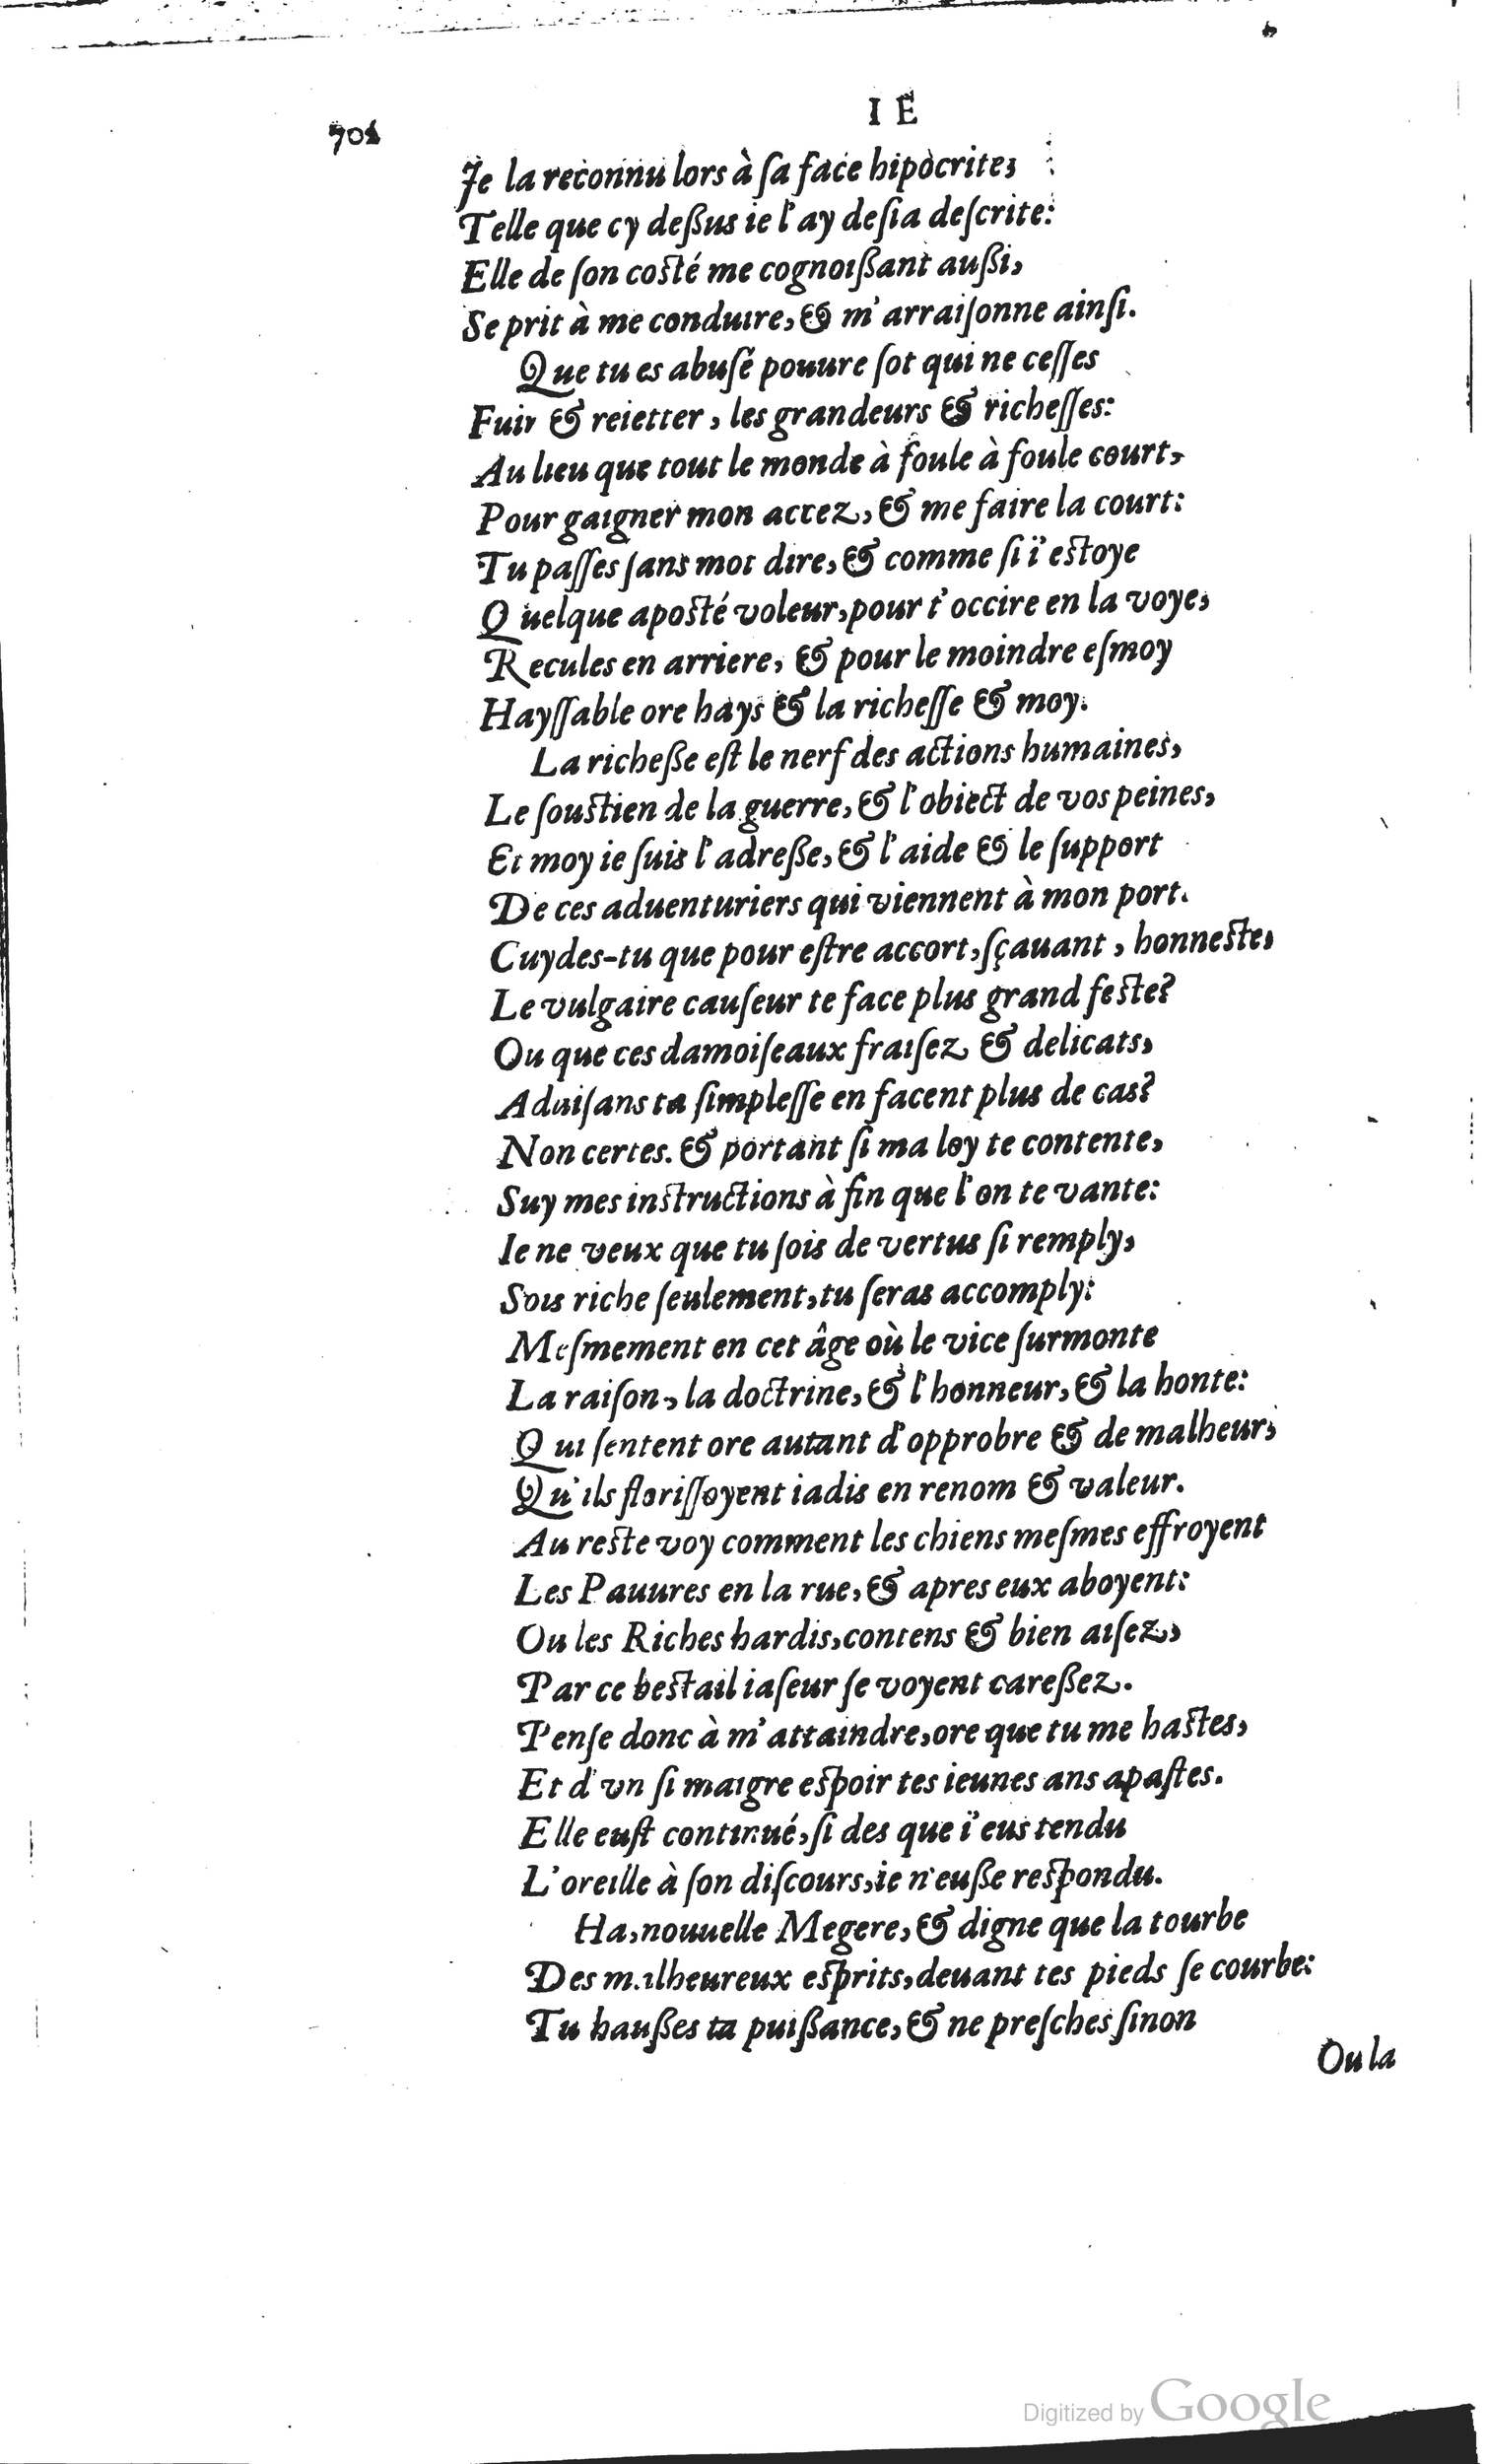 I E
Je la reconnu lors à ſa face hipocrite,
Telle que cy deßus ie l'ay deſia deſcrite:
Elle de ſon coſté me cognoißant außi,
Se prit à me conduire, & m'arraiſonne ainſi.
Que tu es abuſé pouure ſot qui ne ceſſes
Fuir & reietter, les grandeurs & richeſſes:
Au lieu que tout le monde à foule à foule court,
Pour gaigner mon accez, & me faire la court:
Tu paſſes ſans mot dire, & comme ſi i'eſtoye
Quelque apoſté voleur, pour t'occire en la voye,
Recules en arriere, & pour le moindre eſmoy
Hayſſable ore hays & la richeſſe & moy.
La richeße eſt le nerf des actions humaines,
Le ſouſtien de la guerre, & l'obiect de vos peines,
Et moy ie ſuis l'adreße, & l'aide & le ſupport
De ces aduenturiers qui viennent à mon port.
Cuydes-tu que pour eſtre accort, ſçauant, honneſte,
Le vulgaire cauſeur te face plus grand feſte?
Ou que ces damoiſeaux fraiſez & delicats,
Aduiſans ta ſimpleſſe en facent plus de cas?
Non certes. & portant ſi ma loy te contente,
Suy mes inſtructions à fin que l'on te vante:
Ie ne veux que tu ſois de vertus ſi remply,
Sois riche ſeulement, tu ſeras accomply:
Meſmement en cet âge où le vice ſurmonte
La raiſon, la doctrine, & l'honneur, & la honte:
Qui ſentent ore autant d'opprobre & de malheur,
Qu'ils floriſſoyent iadis en renom & valeur.
Au reſte voy comment les chiens meſmes effroyent
Les Pauures en la rue, & apres eux aboyent:
Ou les Riches hardis, contens & bien aiſez,
Par ce beſtail iaſeur ſe voyent careßez.
Penſe donc à m'attaindre, ore que tu me haſtes,
Et d'vn ſi maigre eſpoir tes ieunes ans apaſtes.
Elle euſt continué, ſi des que i'eus tendu
L'oreille à ſon diſcours, ie n'euße reſpondu.
Ha, nouuelle Megere, & digne que la tourbe
Des malheureux eſprits, deuant tes pieds ſe courbe:
Tu haußes ta puißance, & ne preſches ſinon
Ou la
Digitized by Google